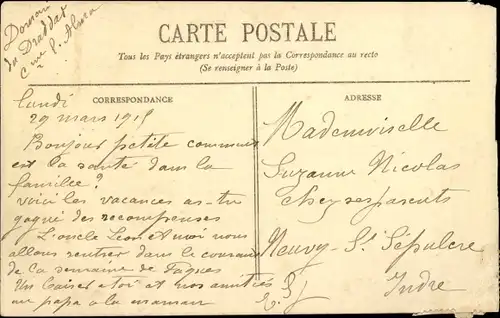 Domaine
du Draddat
CARTE POSTALE
Tous les Pays étrangers n'acceptent pas la Correspondance au recto
(Se renseigner à la Poste)
CORRESPONDANCE
lundi
29 mars 1915
Bonjour petite comment
est la santé dans la
famille?
voici les vacances as-tu
gagné des recompenses
L'oncle Leon et moi nous
allons rentrer dans le courant
de la semaine de Paques
Un baiser a toi et nos amitiés
au papa a la maman
ADRESSE
Mademoiselle
Suzanne Nicolas
chez ses parents
Neuvy-St Sépulcre
Indre